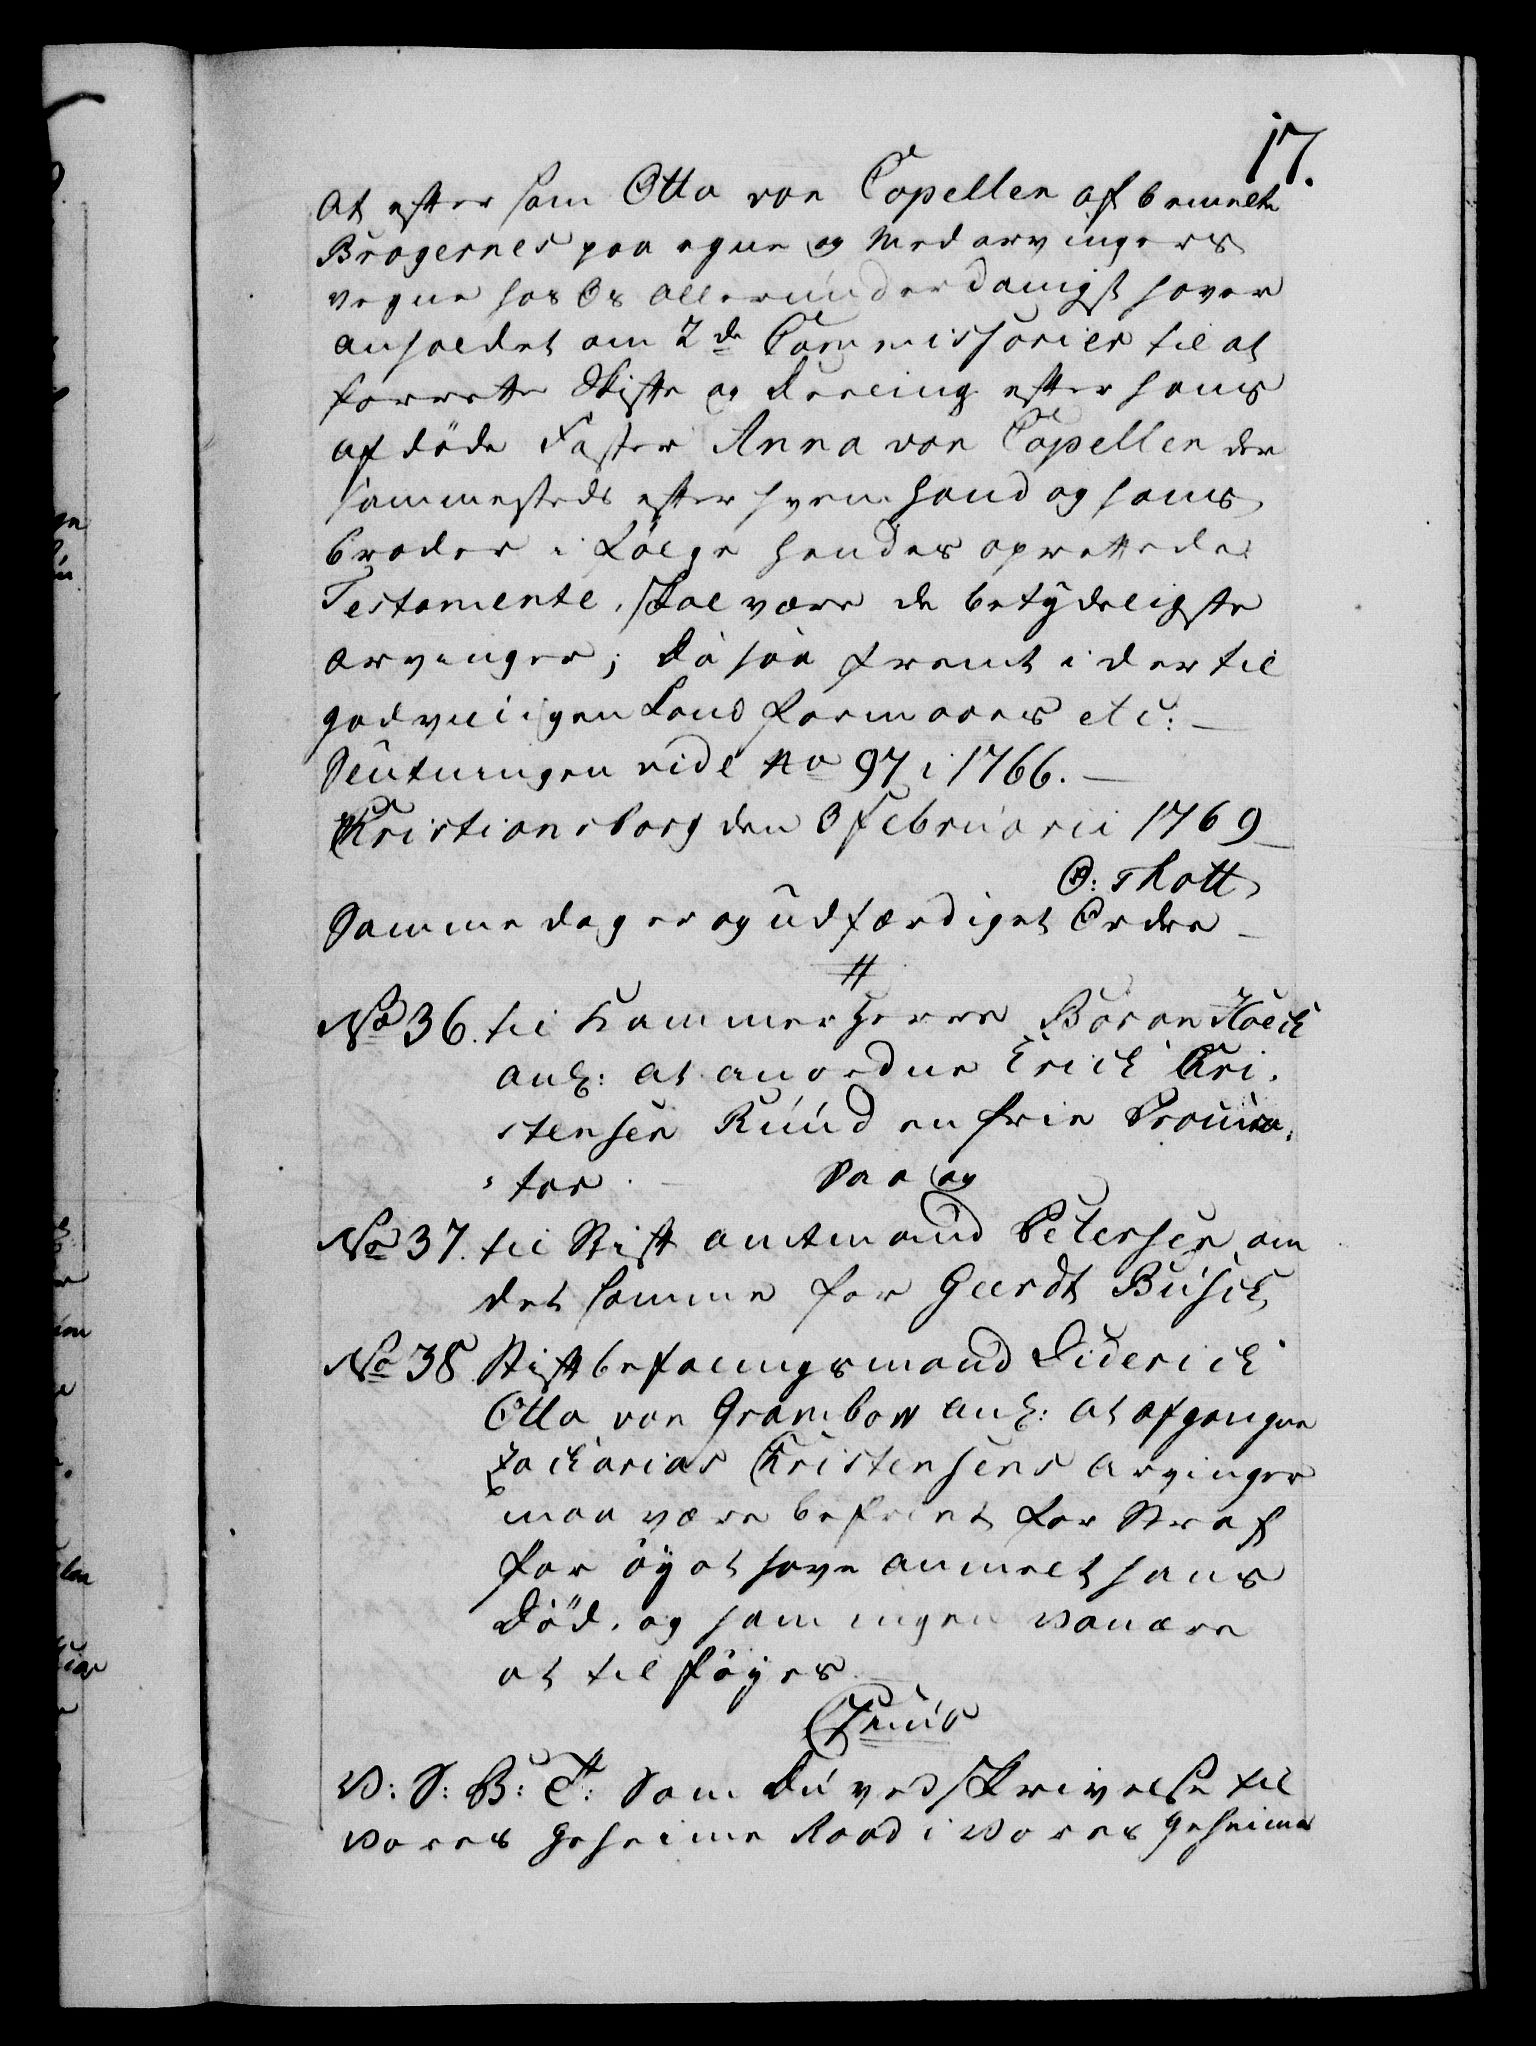 17.
at efter som Otto von Capellen af bemelte
Bragernes paa egne og Medarvingers
vegne hos Os allerunderdanigst haver
anholdet om 2de Commissarier til at
forrette Skifte og Deeling efter hans
afdöde Faster Anna von Capellen der
sammesteds efter hvem hand og hans
broder i fölge hendes oprettede
Testamente, skal være de betydeligste
arvinger; Da saa fremt i dertil
godvilligen Land formaaes etc:
Slutningen vide No 97 i 1766.
Kristiansborg den 3 Februarii 1769
O: Thott
Samme dag er og udfærdiget Ordre
No 36. til Kammer Herre Baron Höeck
ang: at anordne Erick Kri-
stensen Ruud en frie Procura-
tor. Saa og
No 37. til Stift amtmand Petersen om
det samme for Geerdt Busch
No 38 Stiftbefalingsmand Diderich
Otto von Grambow ang: at afgangne
Zackarias Kristensens arvinger
maa være befriet for Straf
for ey at have anmelt hans
Död, og ham ingen Vanære
at tilföyes
C: 7mus
V: S: B: T: Som Du ved skrivelse til
Vores Geheime Raad i Vores Geheime